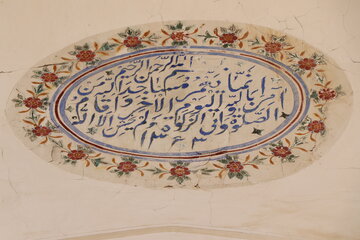 بسم الله الرحمن الرحيم
انما يعمر مساجد الله من
آمن بالله و اليوم الآخر و اقام
الصلوة و آتى الزكوة و لم يخش الا الله